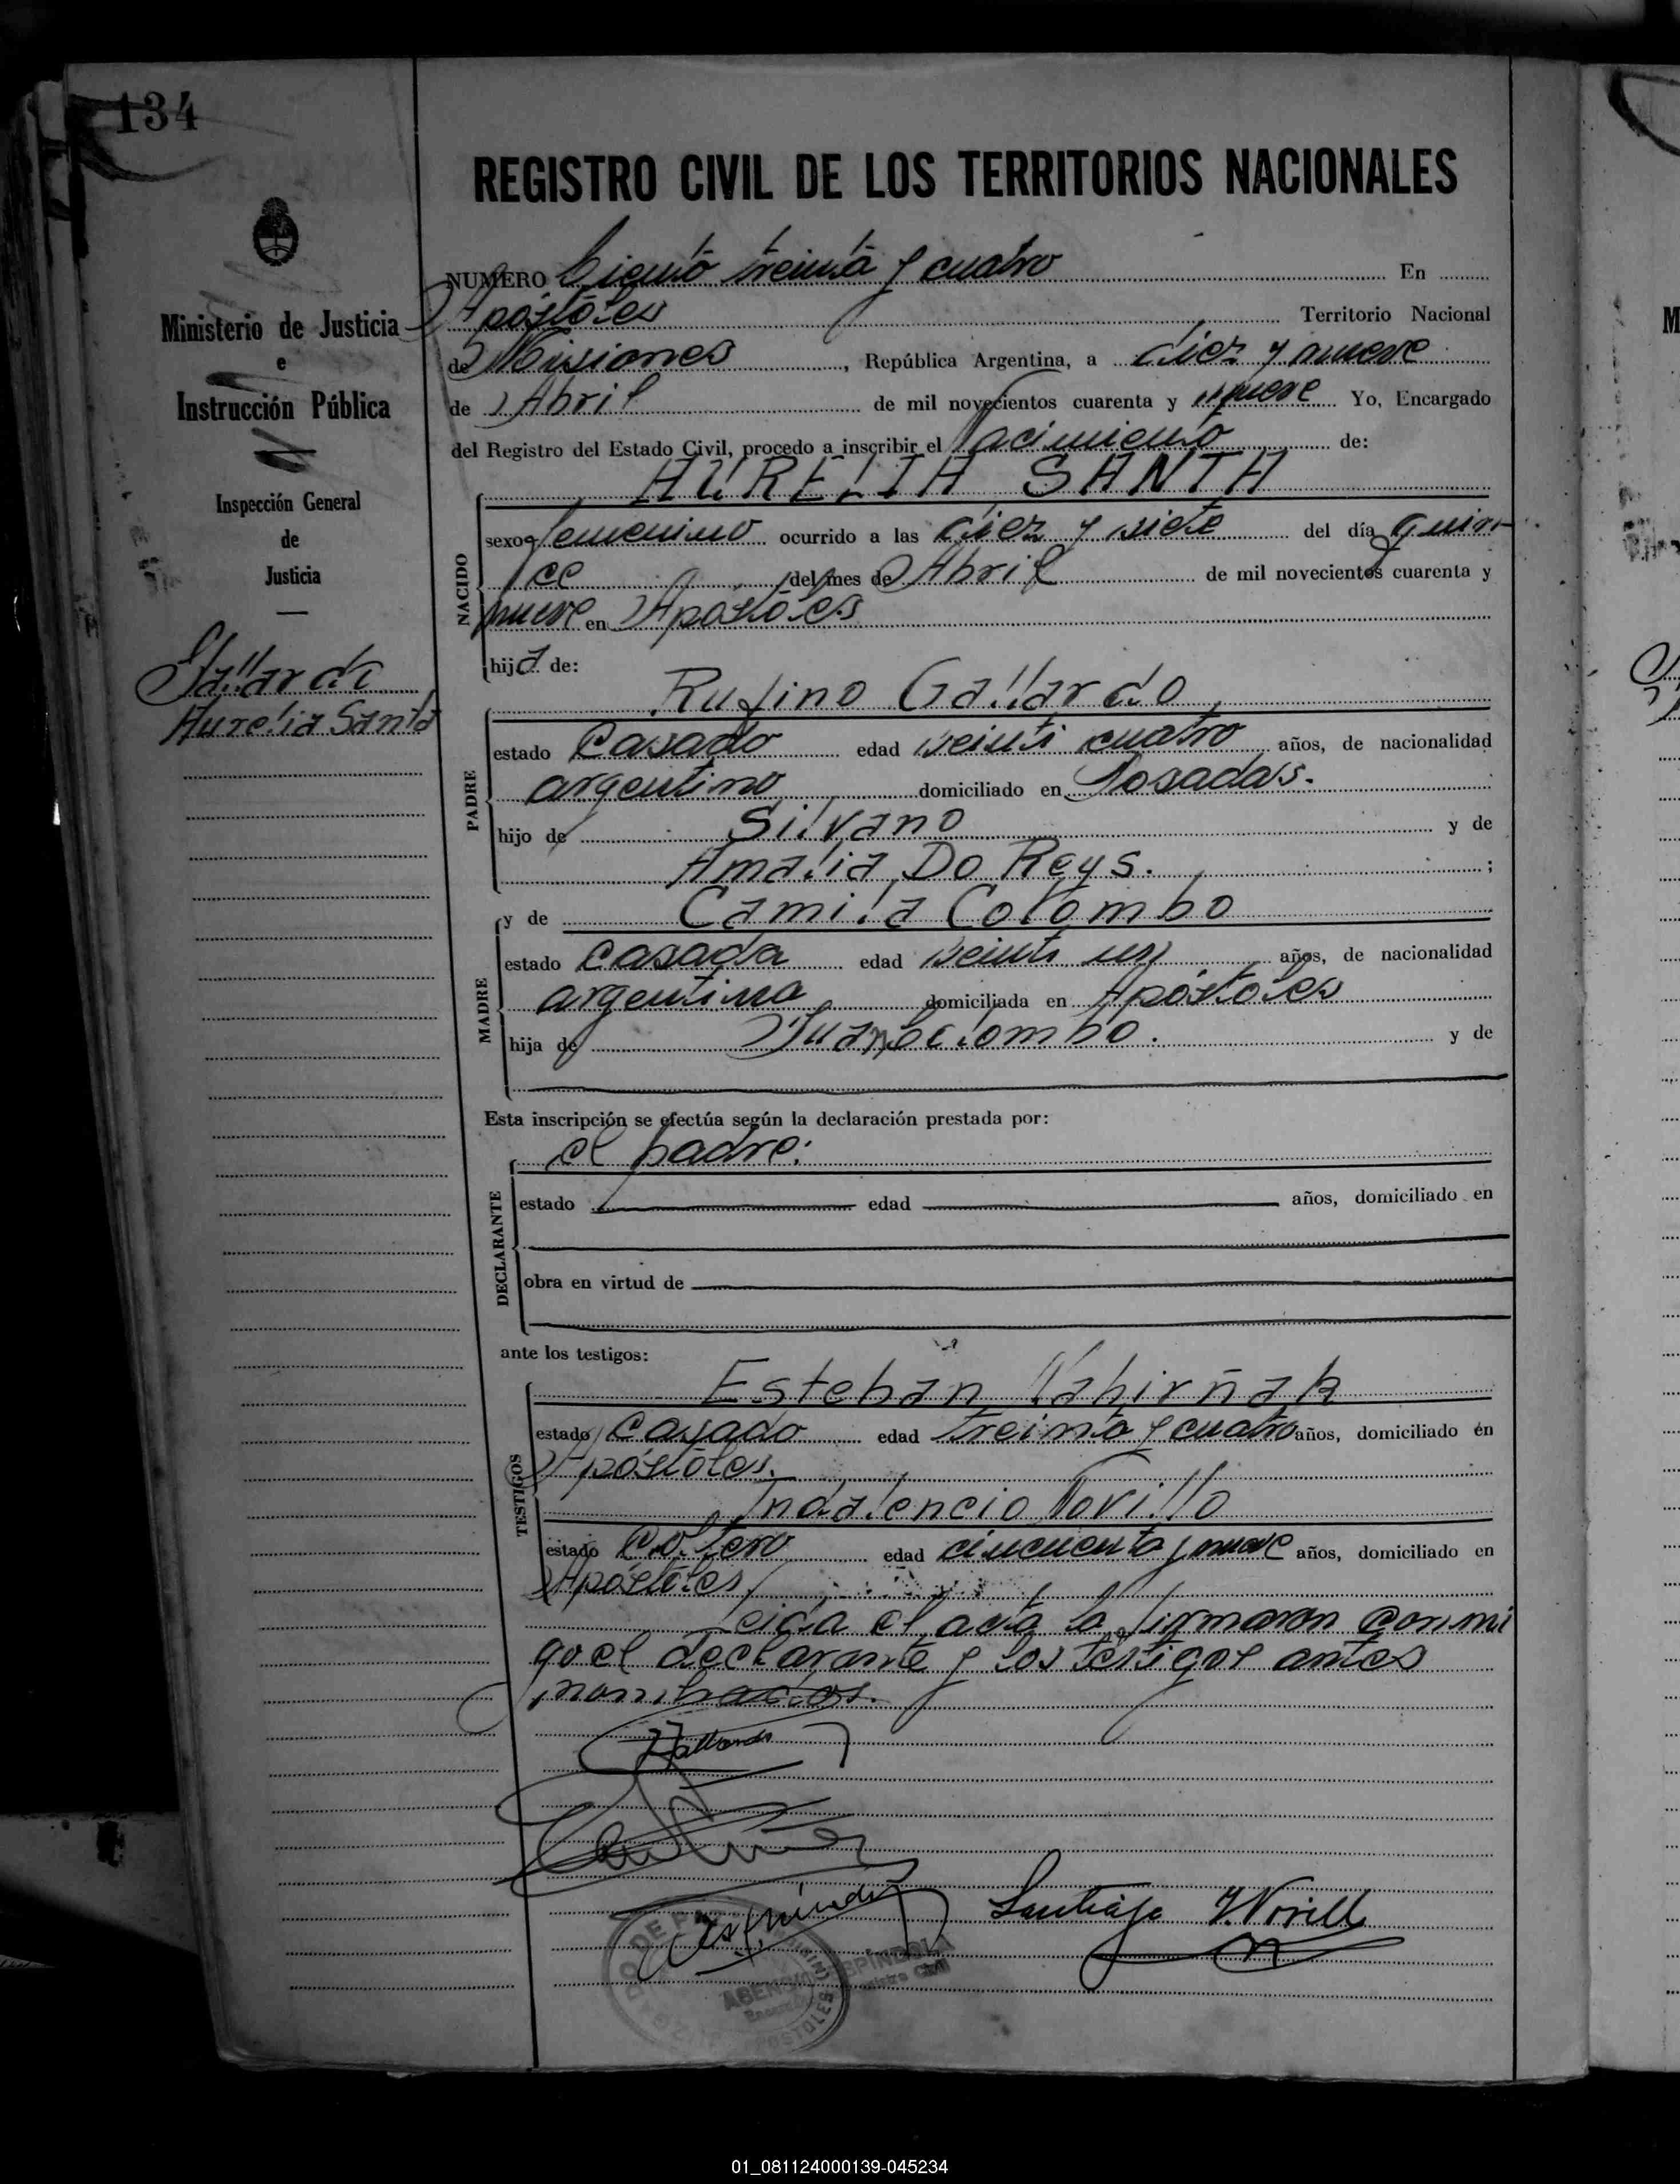 134
REGISTRO CIVIL DE LOS TERRITORIOS NACIONALES
Ministerio de Justicia
e
Instrucción Pública
Inspección General
de
Justicia
Gallardo
Aurelia Santa
NUMERO Ciento treinta y cuatro En
Apóstoles Territorio Nacional
de Misiones, República Argentina, a diez y nueve
de Abril de mil novecientos cuarenta y nueve Yo, Encargado
del Registro del Estado Civil, procedo a inscribir el Nacimiento de:
AURELIA SANTA
NACIDO
sexo femenino ocurrido a las diez y siete del día quin
ce del mes de Abril de mil novecientos cuarenta y
nueve en Apóstoles
hija de:
Rufino Gallardo
PADRE
estado Casado edad veinti cuatro años, de nacionalidad
argentino domiciliado en Posadas.
hijo de Silvano y de
Amalia Do Reys. ;
y de Camila Colombo
MADRE
estado casada edad veinti un años, de nacionalidad
argentina domiciliada en Apóstoles
hija de Juan Colombo. y de
Esta inscripción se efectúa según la declaración prestada por:
el padre:
DECLARANTE
estado edad años, domiciliado en
obra en virtud de
ante los testigos:
Esteban
TESTIGOS
estado Casado edad treinta y cuatro años, domiciliado en
Apóstoles.
Indalencio
estado edad cincuenta y nueve años, domiciliado en
Apóstoles
Leida el acta la firmaron conmi
go el declarante y los testigos antes
nombrados.
Gallardo
Santiago
DE PAZ
ESPINDOLA
Registro Civil
APOSTOLES
01_081124000139-045234